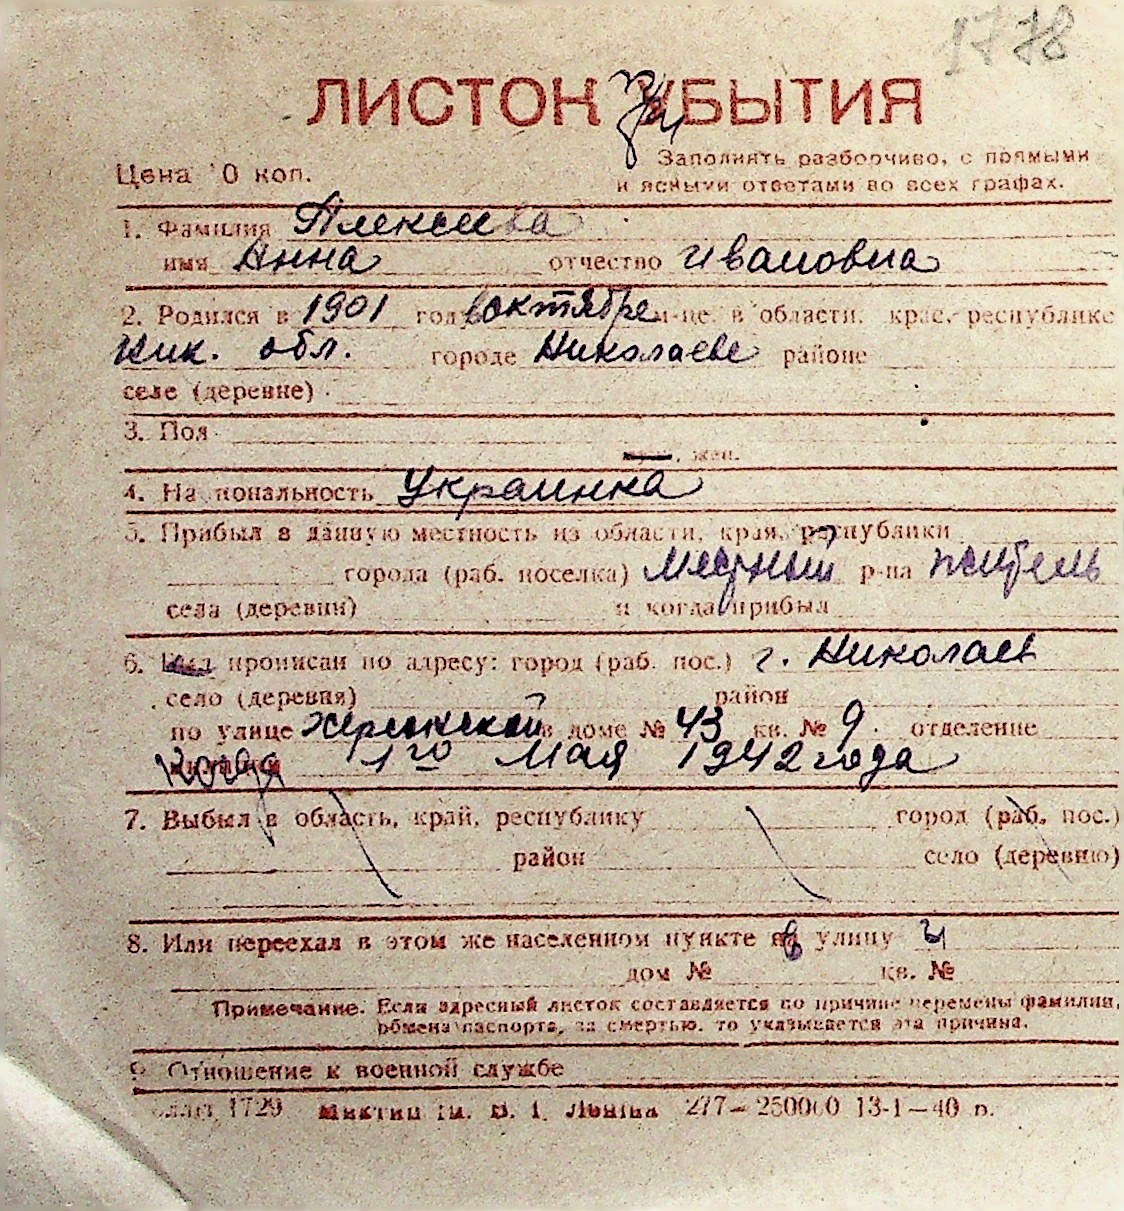 1778
ЛИСТОК УБЫТИЯ
при
Заполнять разборчиво, с прямыми
Цена 10 коп.
и ясными ответами во всех графах.
1. Фамилия Алексеева
имя Анна отчество Ивановна
2. Родился в 1901 году в октябре м-це, в области, крае, республике
Ник. обл. городе Николаеве районе
селе (деревне)
3. Пол
муж., жен.
4. Национальность Украинка
5. Прибыл в данную местность из области, края, республики
города (раб. поселка) местный р-на житель
села (деревни) и когда прибыл
6. Был прописан по адресу: город (раб. пос.) г. Николаев
село (деревня) район
по улице Херсонской в доме № 43 кв. № 9. отделение
когда 1го Мая 1942 года
7. Выбыл в область, край, республику город (раб. пос.)
район село (деревню)
8. Или переехал в этом же населенном пункте на улицу
дом № кв. №
Примечание. Если адресный листок составляется по причине перемены фамилии,
обмена паспорта, за смертью, то указывается эта причина.
9. Отношение к военной службе
1729 им. В. І. Леніна 277—250000 13-1—40 р.